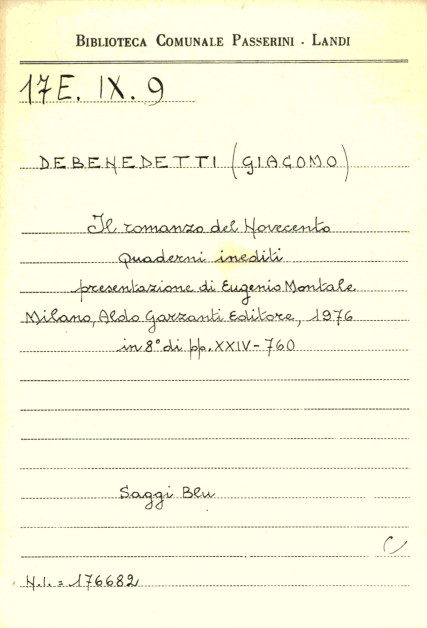 BIBLIOTECA COMUNALE PASSERINI - LANDI
17E. IX. 9
DEBENEDETTI (GIACOMO)
Il romanzo del Novecento
quaderni inediti
presentazione di Eugenio Montale
Milano, Aldo Garzanti Editore, 1976
in 8° di pp. XXIV-760
Saggi Blu
C
N.i. = 176682